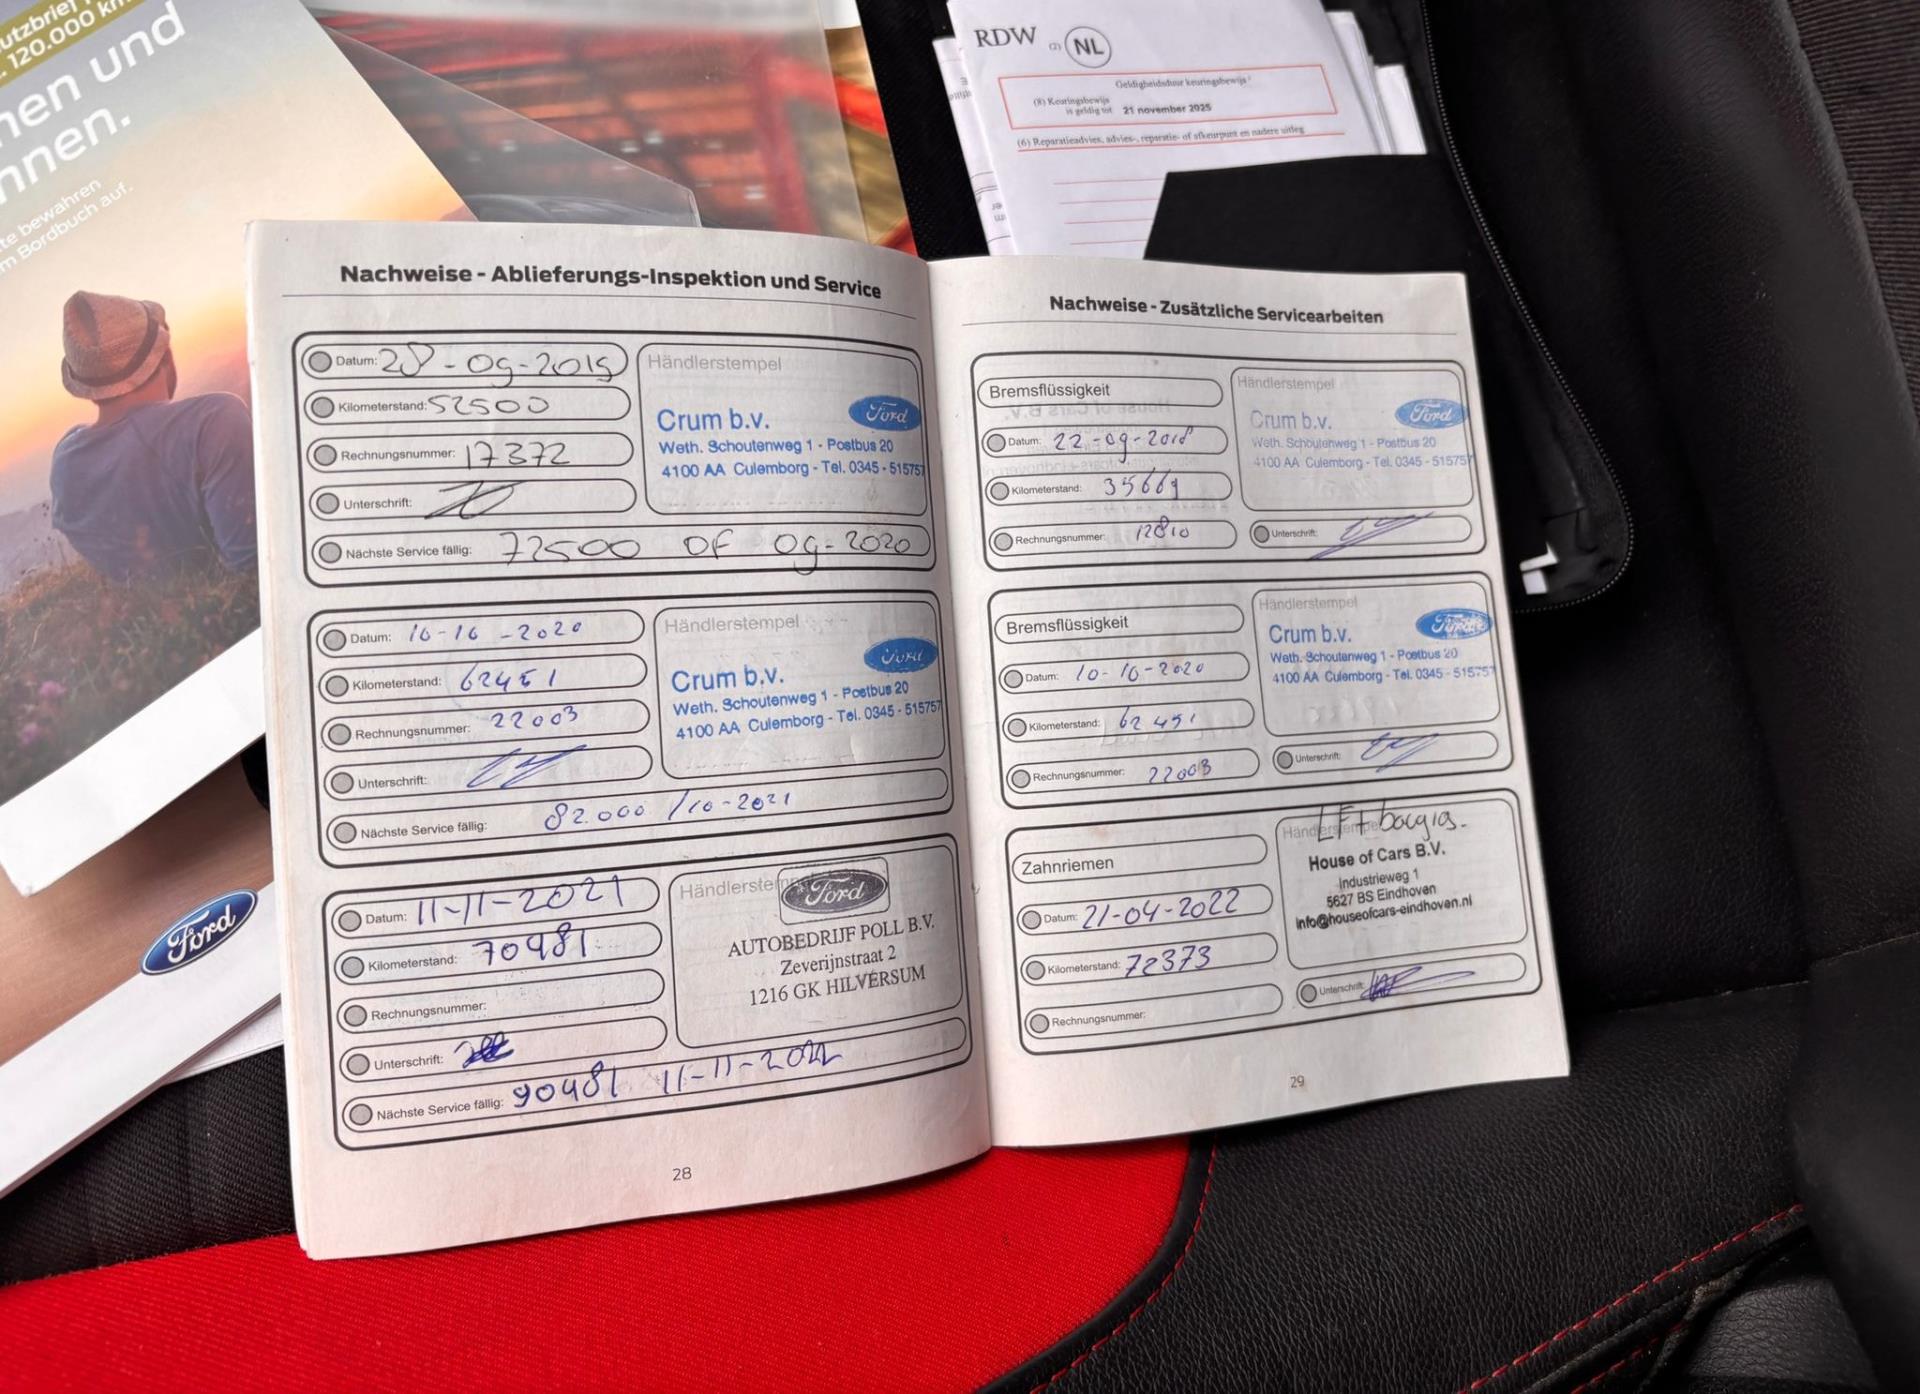 120.000 km
nen und
nnen.
te bewahren
m Bordbuch auf.
Ford
RDW (2) NL
Geldigheidsduur keuringsbewijs
(8) Keuringsbewijs
is geldig tot 21 november 2025
(6) Reparatieadvies, advies-, reparatie- of afkeurpunt en nadere uitleg
Nachweise - Ablieferungs-Inspektion und Service
Datum: 28-09-2019
Kilometerstand: 52500
Rechnungsnummer: 17372
Unterschrift:
Nächste Service fällig: 72500 OF 09-2020
Händlerstempel
Ford
Crum b.v.
Weth. Schoutenweg 1 - Postbus 20
4100 AA Culemborg - Tel. 0345 - 515757
Datum: 16-16-2020
Kilometerstand: 62451
Rechnungsnummer: 22003
Unterschrift:
Nächste Service fällig: 82.000 /10-2021
Händlerstempel
Ford
Crum b.v.
Weth. Schoutenweg 1 - Postbus 20
4100 AA Culemborg - Tel. 0345 - 515757
Datum: 11-11-2021
Kilometerstand: 70481
Rechnungsnummer:
Unterschrift:
Nächste Service fällig: 90481 11-11-2022
Händlerstem
Ford
AUTOBEDRIJF POLL B.V.
Zeverijnstraat 2
1216 GK HILVERSUM
28
Nachweise - Zusätzliche Servicearbeiten
Bremsflüssigkeit
Datum: 22-09-2018
Kilometerstand: 35669
Rechnungsnummer: 12810
Händlerstempel
Ford
Crum b.v.
Weth. Schoutenweg 1 - Postbus 20
4100 AA Culemborg - Tel. 0345 - 515757
Unterschrift:
Bremsflüssigkeit
Datum: 10-10-2020
Kilometerstand: 62451
Rechnungsnummer: 22003
Händlerstempel
Ford
Crum b.v.
Weth. Schoutenweg 1 - Postbus 20
4100 AA Culemborg - Tel. 0345 - 515757
Unterschrift:
Zahnriemen
Datum: 21-04-2022
Kilometerstand: 72373
Rechnungsnummer:
Händlerstempel
House of Cars B.V.
Industrieweg 1
5627 BS Eindhoven
info@houseofcars-eindhoven.nl
Unterschrift:
29